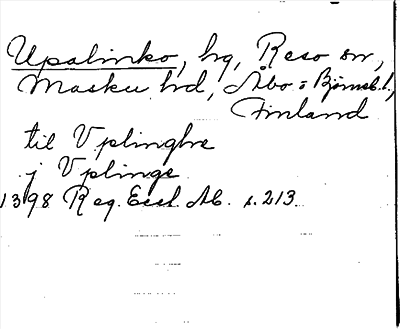 Upalinko, hg, Reso sn,
Masku hd, Åbo o Björneb. l.,
Finland
til Vplinghe
j Vplinge
1398 Reg. Eccl. Ab. s. 213.